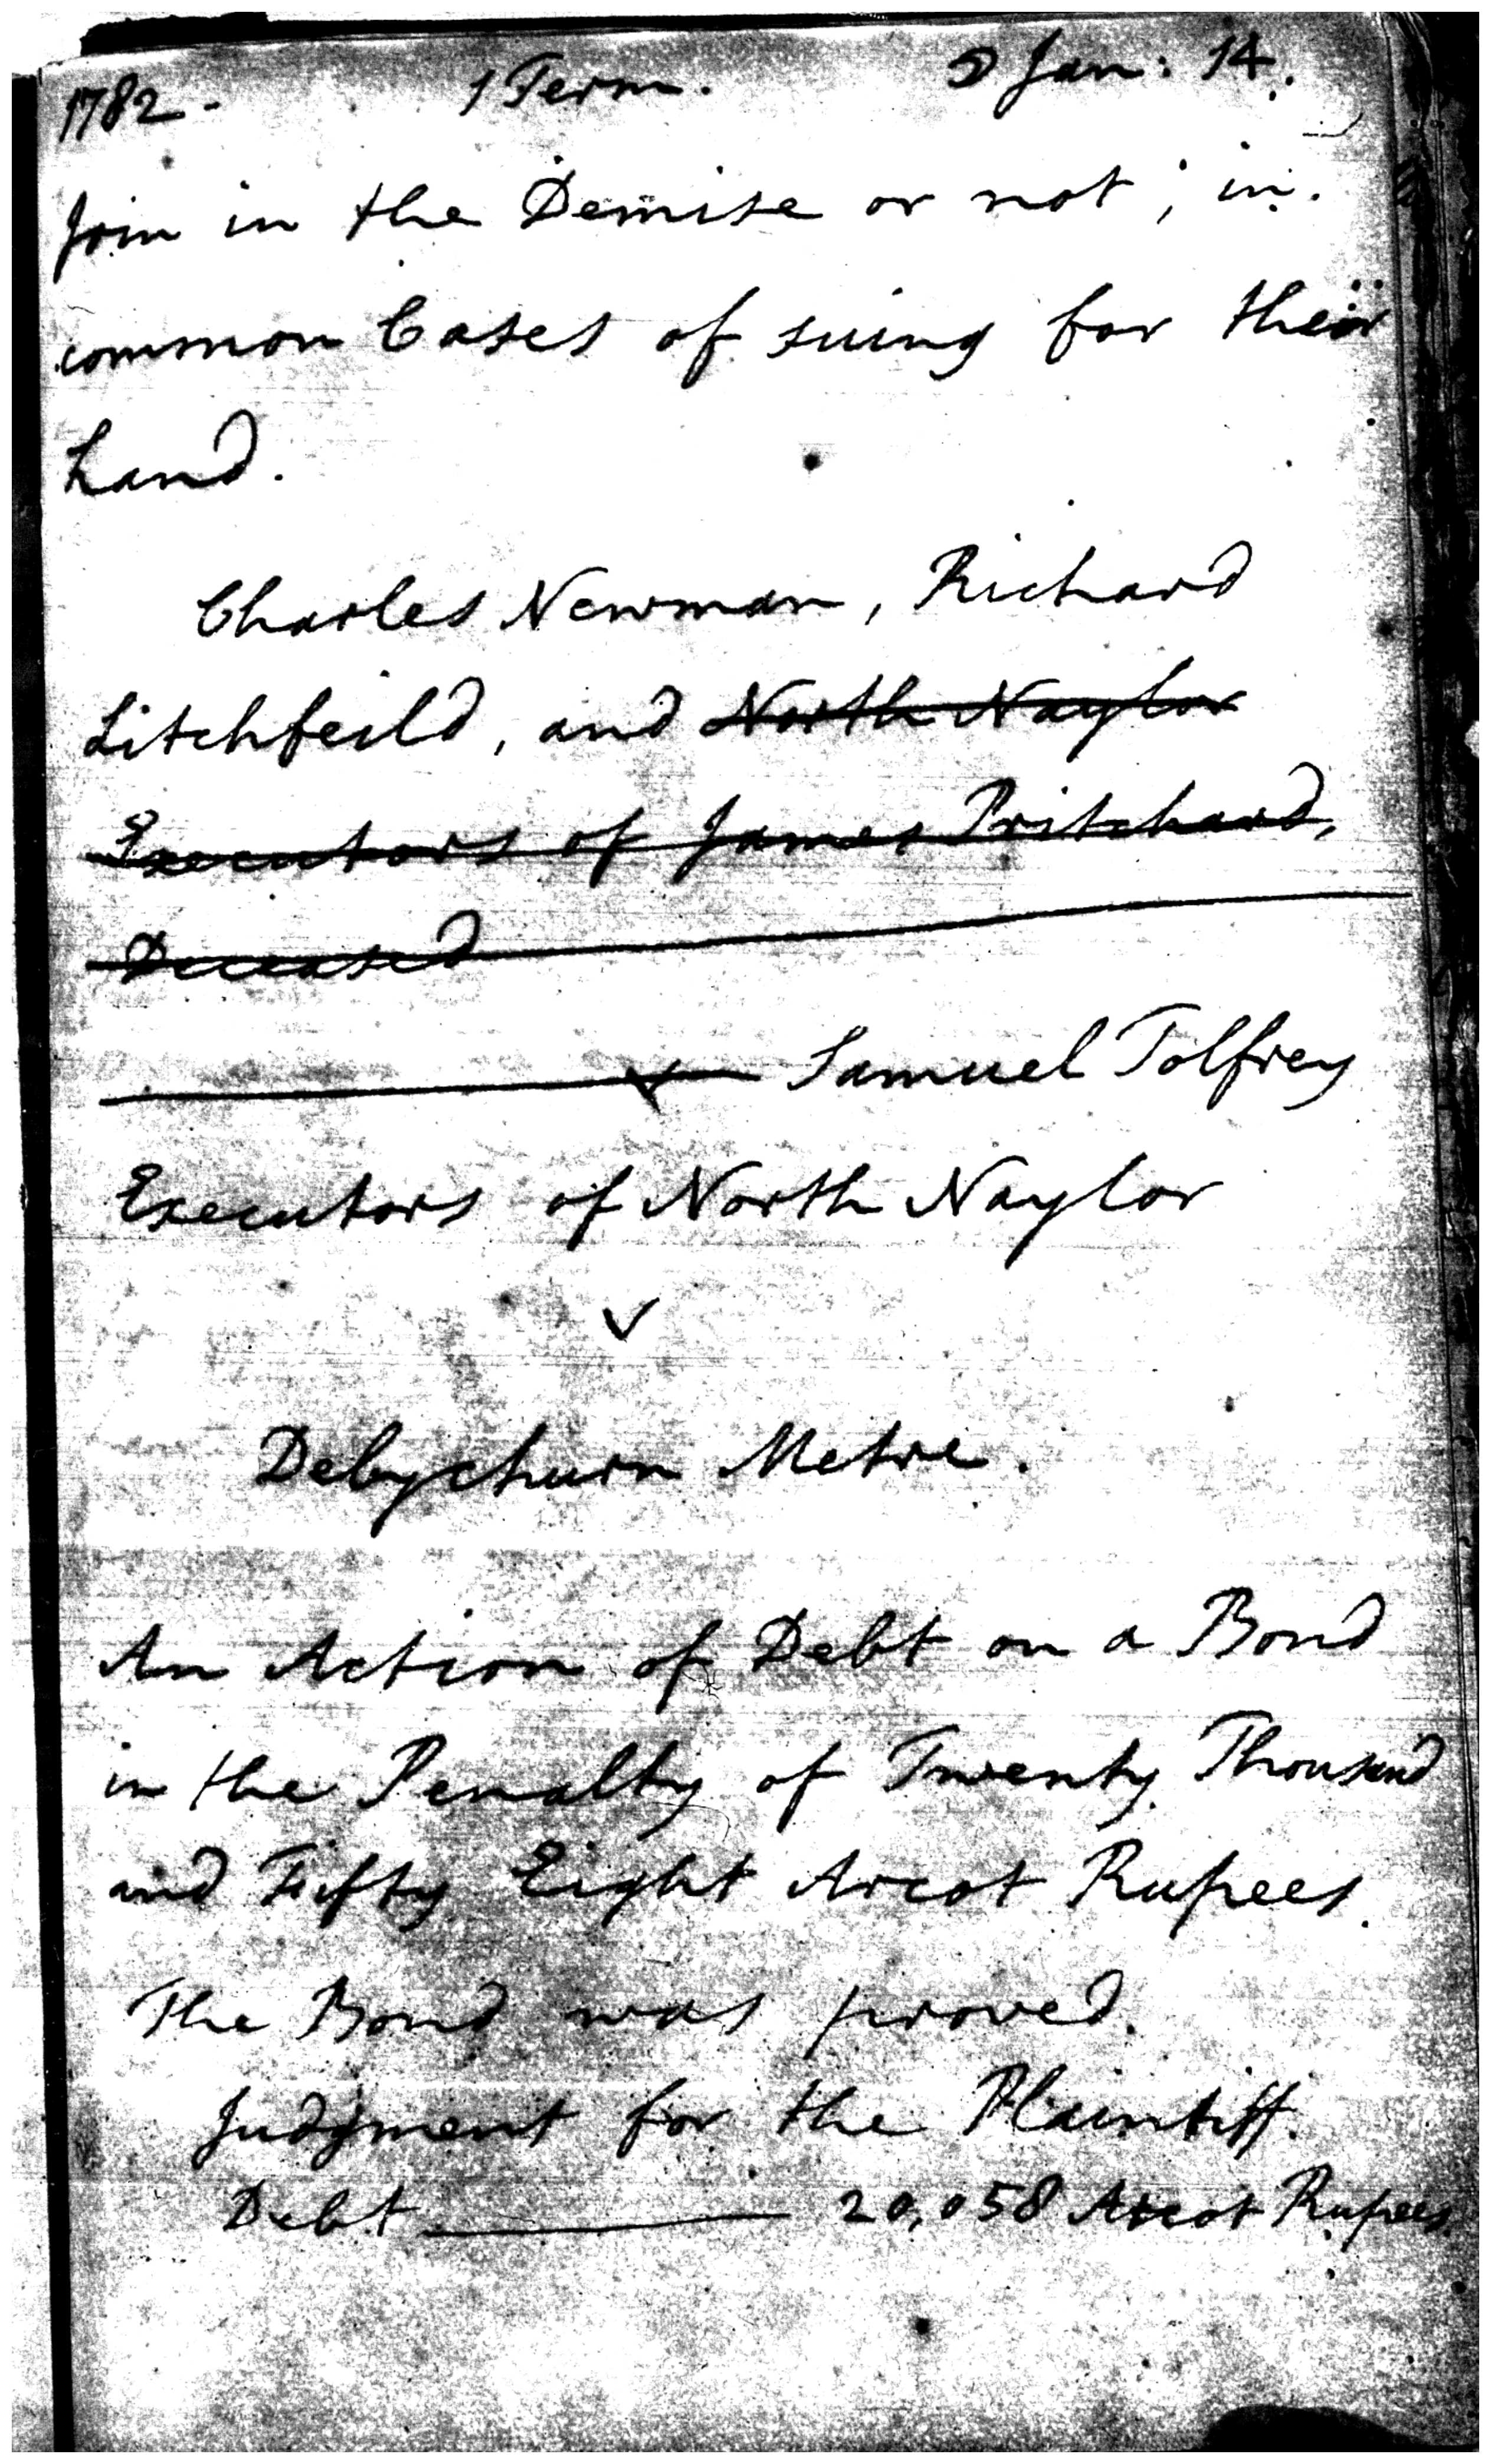 1782. 1 Term. ☽ Jan: 14.
Join in the Demise or not; in
common Cases of suing for their
Land.
Charles Newman, Richard
Litchfeild, and North Naylor
Executors of James Pritchard,
Deceased
Samuel Tolfrey
Executors of North Naylor
v
Debychurn Metre.
An Action of Debt on a Bond
in the Penalty of Twenty Thousand
and Fifty Eight Arcot Rupees.
The Bond was proved.
Judgment for the Plaintiff.
Debt 20,058 Arcot Rupees.